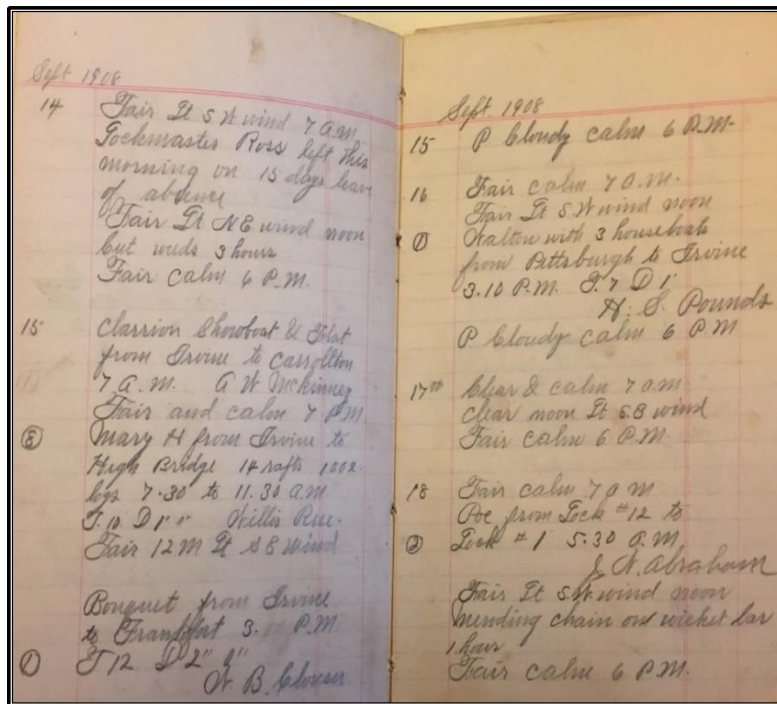 Sept 1908
14 Fair Lt S W wind 7 a.m.
Lockmaster Ross left this
morning on 15 days leave
of absence
Fair Lt NE wind noon
Cut weeds 3 hours
Fair calm 6 P.M.
15 Clarrion Showboat & Flat
from Irvine to Carrollton
7 A.M. A W McKinney
Fair and calm 7 P.M.
⑧ Mary H from Irvine to
High Bridge 14 rafts 1002
logs 7.30 to 11.30 a.m.
T. 10 D 1' " Willis Rue.
Fair 12 M Lt SE wind
Bouquet from Irvine
to Frankfort 3. P.M.
① T 12 D 2"
B. Clouser.
Sept. 1908
15 P Cloudy calm 6 P.M.
16 Fair calm 7 a.m.
Fair Lt S W wind noon
① Walton with 3 houseboats
from Pittsburgh to Irvine
3.10 P.M. T. 7 D 1'
H. S. Pounds
P Cloudy calm 6 P.M
17th Clear & calm 7 a.m.
clear noon Lt SE wind
Fair calm 6 P.M.
18 Fair calm 7 a m
Poe from Lock #12 to
② Lock #1 5.30 A.M.
J. N. Abraham
Fair Lt S.W. wind noon
mending chain on wicket bar
1 hour
Fair calm 6 P.M.